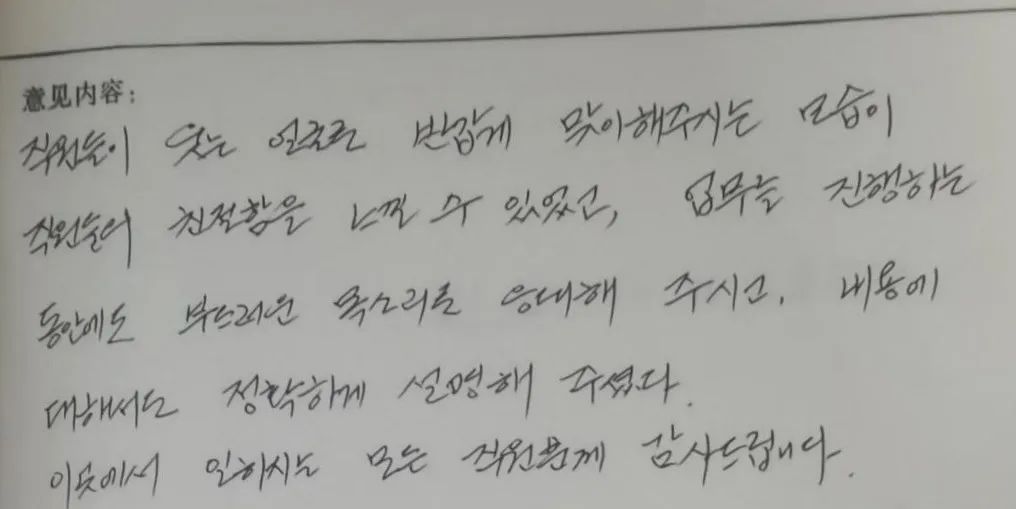 意见内容:
직원들이 웃는 얼굴로 반갑게 맞이해주시는 모습이
직원들의 친절함을 느낄 수 있었고, 업무를 진행하는
동안에도 부드러운 목소리로 응대해 주시고, 내용에
대해서도 정확하게 설명해 주셨다.
이곳에서 일하시는 모든 직원분께 감사드립니다.